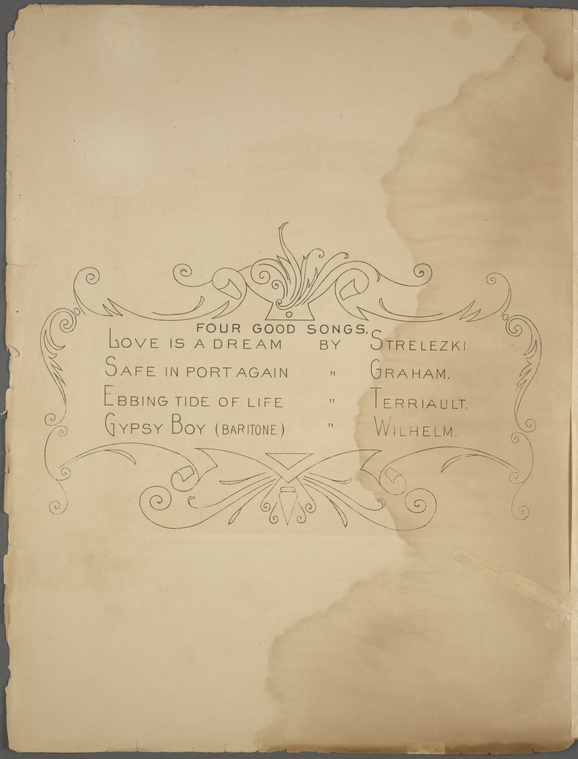 FOUR GOOD SONGS.
LOVE IS A DREAM BY STRELEZKI.
SAFE IN PORT AGAIN " GRAHAM.
EBBING TIDE OF LIFE " TERRIAULT.
GYPSY BOY (BARITONE) " WILHELM.